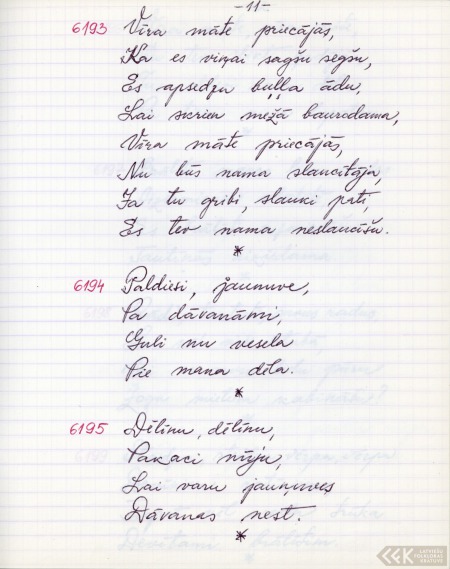 -11-
6193 Vīra māte priecājās,
Ka es viņai sagšu segšu,
Es apsedzu buļļa ādu,
Lai skrien mežā baurodama,
Vīra māte priecājās,
Nu būs nama slaucītāja,
Ja tu gribi, slauki pati,
Es tev nama neslaucīšu.
*
6194 Paldiesi, jaunuve,
Pa dāvanāmi,
Guli nu vesela
Pie mana dēla.
*
6195 Dēliņu, dēliņu,
Pakaci nūju,
Lai varu jauņuves
Dāvanas nest.
*
LATVIEŠU
FOLKLORAS
KRĀTUVE